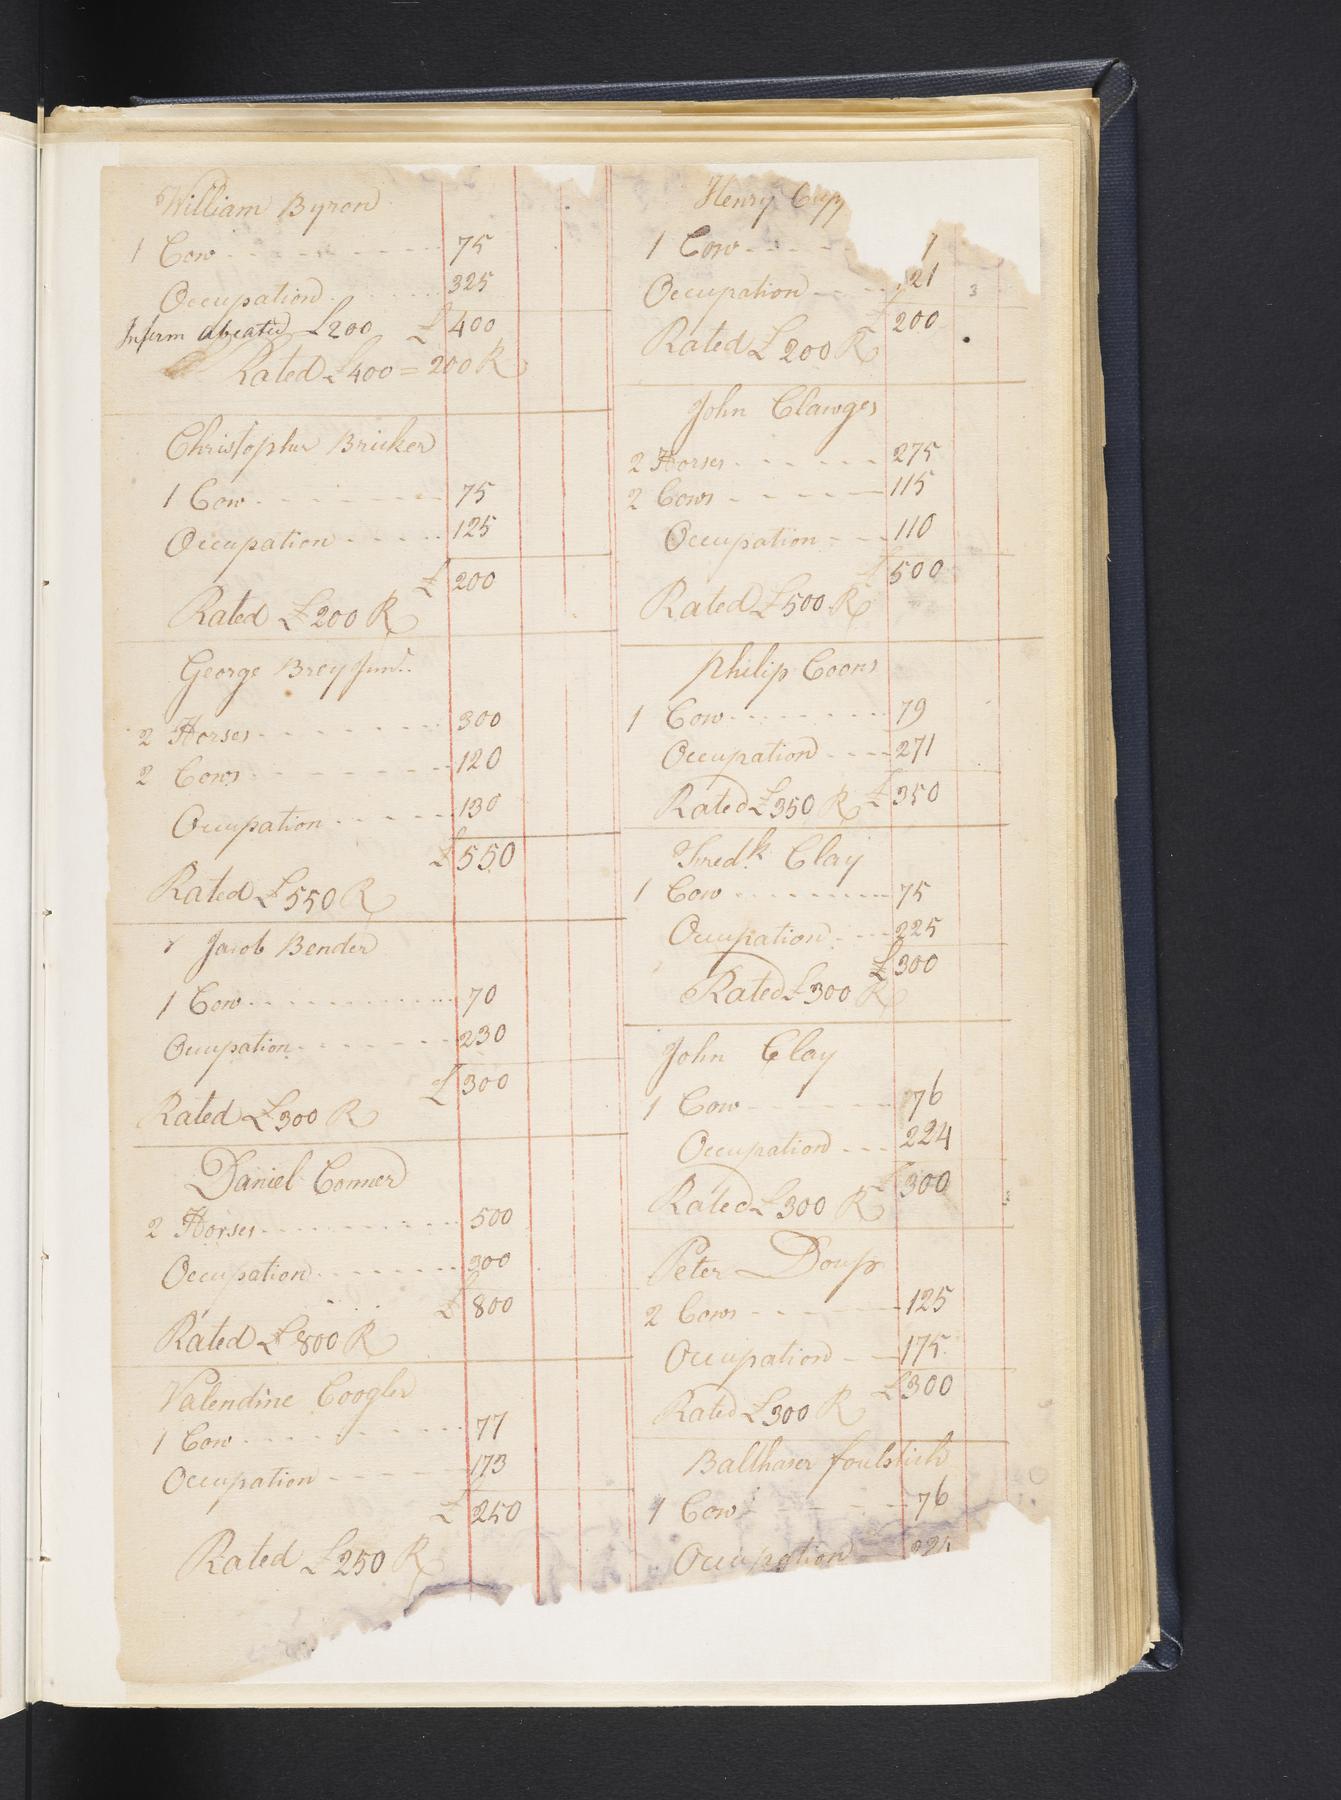 William Byron
1 Cow - - - - - - 75
Occupation - - - - 325
Infirm abeated £200 £ 400
Rated £400 = 200 R
Christopher Bricker
1 Cow - - - - - 75
Occupation - - - - - 125
£ 200
Rated £200 R
George Brey Junr.
2 Horses - - - - - - 300
2 Cows - - - - - - 120
Occupation - - - - - 130
£ 550
Rated £550 R
Jacob Bender
1 Cow - - - - - - 70
Occupation - - - - - 230
£ 300
Rated £300 R
Daniel Conner
2 Horses - - - - - - 500
Occupation - - - - - - 300
£ 800
Rated £800 R
Valendine Coogler
1 Cow - - - - - - 77
Occupation - - - - 173
£ 250
Rated £250 R
Henry Cupp
1 Cow - - - -
Occupation - - - 21
£ 200
Rated £200 R
John Clawges
2 Horses - - - - - 275
2 Cows - - - - 115
Occupation - - - 110
£ 500
Rated £500 R
Philip Coons
1 Cow - - - - - - 79
Occupation - - - 271
Rated £350 R £ 350
Fredk. Clay
1 Cow - - - - - - 75
Occupation - - - 225
£ 300
Rated £300 R
John Clay
1 Cow - - - - - 76
Occupation - - - 224
Rated £300 R £ 300
Peter Doup
2 Cows - - - - - 125
Occupation - - 175
£ 300
Rated £300 R
Balthaser foulstich
1 Cow - - - - - 76
Occupation - 224